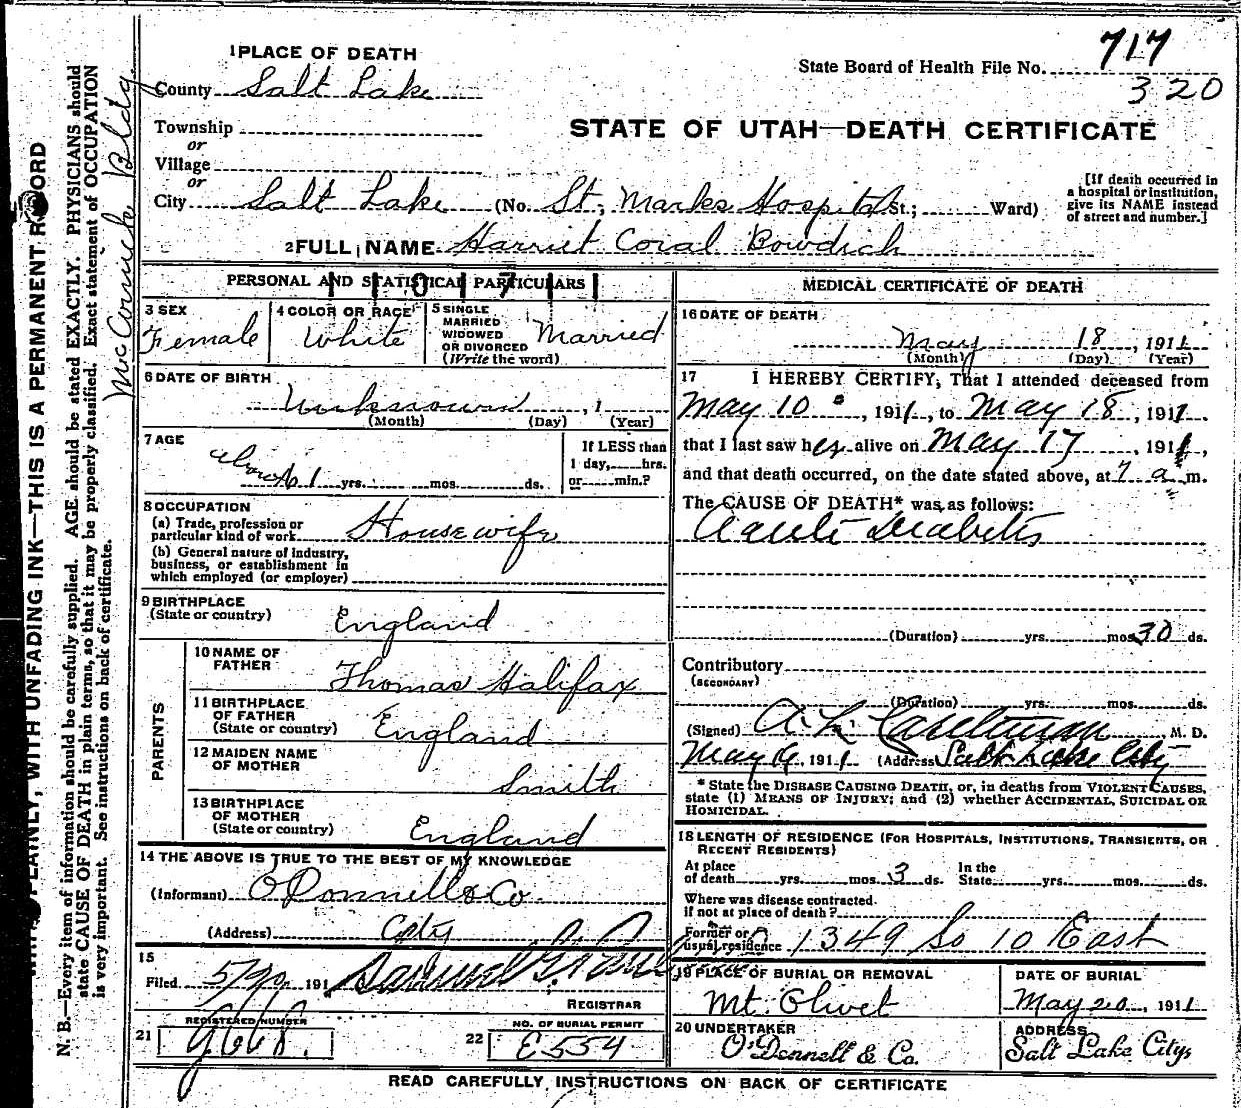 717
State Board of Health File No.
320
1 PLACE OF DEATH
County Salt Lake
STATE OF UTAH—DEATH CERTIFICATE
Township
or
Village
or
City Salt Lake (No. St. Marks Hospital St.; Ward)
[If death occurred in
a hospital or institution,
give its NAME instead
of street and number.]
2 FULL NAME Harriet Coral Bowdich
PERSONAL AND STATISTICAL PARTICULARS
3 SEX
Female
4 COLOR OR RACE
White
5 SINGLE
MARRIED
WIDOWED
OR DIVORCED
(Write the word)
Married
6 DATE OF BIRTH
Unknown , 1
(Month) (Day) (Year)
7 AGE
about 61 yrs. mos. ds.
If LESS than
1 day, hrs.
or min.?
8 OCCUPATION
(a) Trade, profession or
particular kind of work Housewife
(b) General nature of industry,
business, or establishment in
which employed (or employer)
9 BIRTHPLACE
(State or country)
England
PARENTS
10 NAME OF
FATHER
Thomas Halifax
11 BIRTHPLACE
OF FATHER
(State or country)
England
12 MAIDEN NAME
OF MOTHER
Smith
13 BIRTHPLACE
OF MOTHER
(State or country)
England
14 THE ABOVE IS TRUE TO THE BEST OF MY KNOWLEDGE
(Informant) O'Donnell & Co
(Address) City
15
Filed 5/20, 191 Samuel G.
REGISTRAR
21
REGISTERED NUMBER
9668
22
NO. OF BURIAL PERMIT
E554
MEDICAL CERTIFICATE OF DEATH
16 DATE OF DEATH
May 18, 1911
(Month) (Day) (Year)
17 I HEREBY CERTIFY, That I attended deceased from
May 10, 1911, to May 18, 1911
that I last saw her alive on May 17, 1911,
and that death occurred, on the date stated above, at 7 a m.
The CAUSE OF DEATH* was as follows:
Acute Diabetis
(Duration) yrs. mos. 30 ds.
Contributory
(SECONDARY)
(Duration) yrs. mos. ds.
(Signed) A. L. Castleman M. D.
May, 1911 (Address) Salt Lake City
* State the DISEASE CAUSING DEATH, or, in deaths from VIOLENT CAUSES,
state (1) MEANS OF INJURY; and (2) whether ACCIDENTAL, SUICIDAL OR
HOMICIDAL.
18 LENGTH OF RESIDENCE (FOR HOSPITALS, INSTITUTIONS, TRANSIENTS, OR
RECENT RESIDENTS)
At place
of death yrs. mos. 3 ds.
In the
State yrs. mos. ds.
Where was disease contracted.
if not at place of death?
Former or
usual residence 1349 So 10 East
19 PLACE OF BURIAL OR REMOVAL
Mt. Olivet
DATE OF BURIAL
May 20, 1911
20 UNDERTAKER
O'Donnell & Co.
ADDRESS
Salt Lake City
READ CAREFULLY INSTRUCTIONS ON BACK OF CERTIFICATE
WRITE PLAINLY, WITH UNFADING INK—THIS IS A PERMANENT RECORD
N. B.—Every item of information should be carefully supplied. AGE should be stated EXACTLY. PHYSICIANS should
state CAUSE OF DEATH in plain terms, so that it may be properly classified. Exact statement of OCCUPATION
is very important. See instructions on back of certificate.
McCornick Bldg.